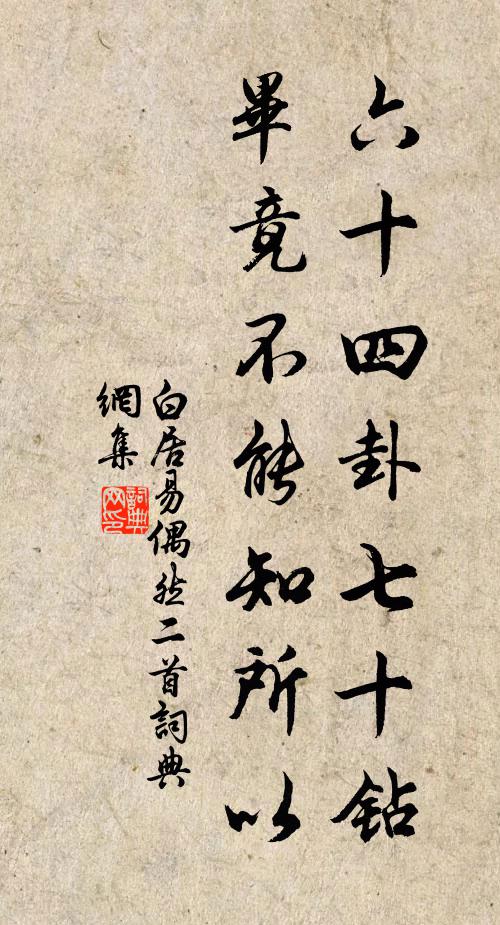 六十四卦七十钻
畢竟不能知所以
白居易偶然二首詞典
網集
詞典
网印